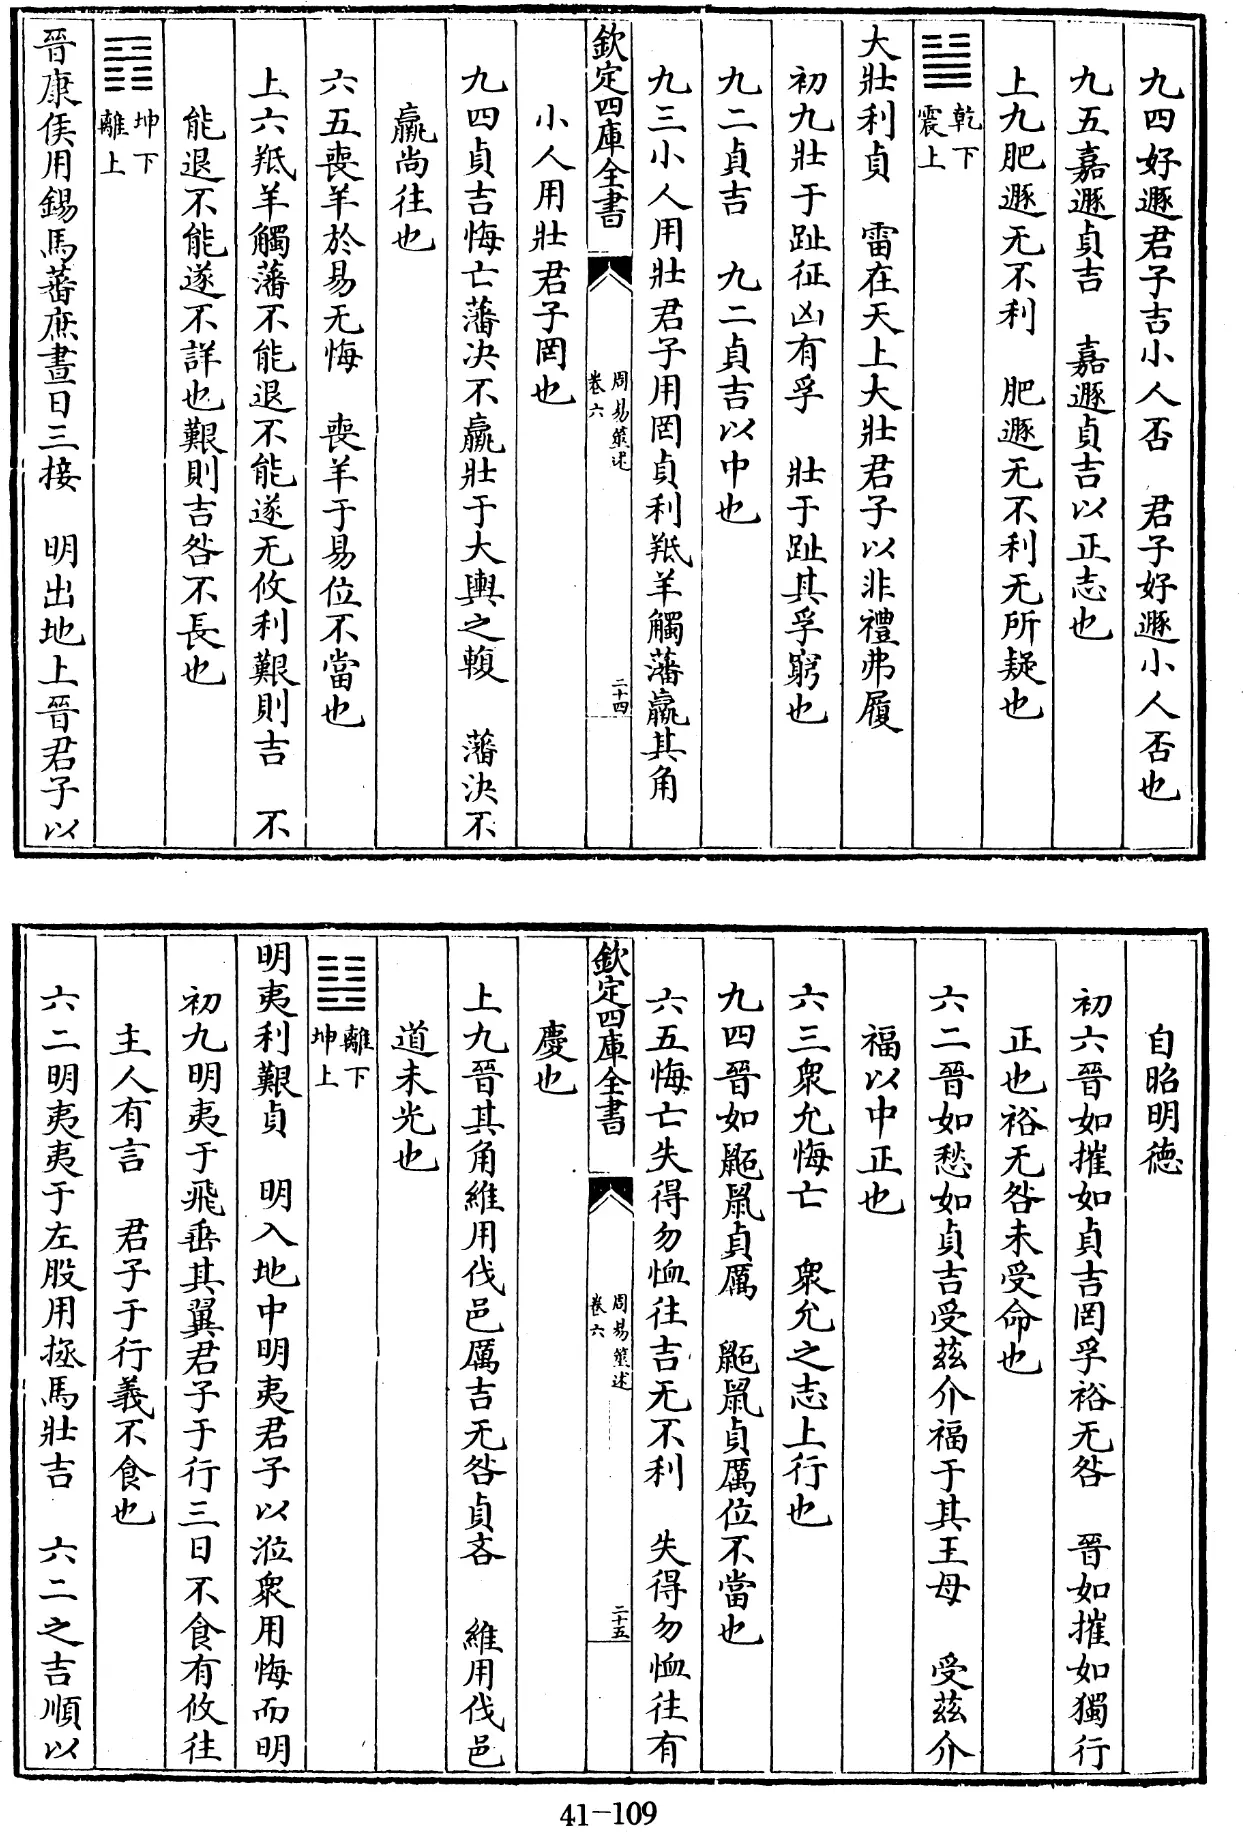 九四好遯君子吉小人否　君子好遯小人否也
九五嘉遯貞吉　嘉遯貞吉以正志也
上九肥遯无不利　肥遯无不利无所疑也
乾下
震上
大壯利貞　雷在天上大壯君子以非禮弗履
初九壯于趾征凶有孚　壯于趾其孚窮也
九二貞吉　九二貞吉以中也
九三小人用壯君子用罔貞利羝羊觸藩羸其角
欽定四庫全書
周易筮述
卷六
二十四
小人用壯君子罔也
九四貞吉悔亡藩決不羸壯于大輿之輹　藩決不
羸尚往也
六五喪羊於易无悔　喪羊于易位不當也
上六羝羊觸藩不能退不能遂无攸利艱則吉　不
能退不能遂不詳也艱則吉咎不長也
坤下
離上
晉康侯用錫馬蕃庶晝日三接　明出地上晉君子以
自昭明德
初六晉如摧如貞吉罔孚裕无咎　晉如摧如獨行
正也裕无咎未受命也
六二晉如愁如貞吉受茲介福于其王母　受茲介
福以中正也
六三眾允悔亡　眾允之志上行也
九四晉如鼫鼠貞厲　鼫鼠貞厲位不當也
六五悔亡失得勿恤往吉无不利　失得勿恤往有
欽定四庫全書
周易筮述
卷六
二十五
慶也
上九晉其角維用伐邑厲吉无咎貞吝　維用伐邑
道未光也
離下
坤上
明夷利艱貞　明入地中明夷君子以涖眾用悔而明
初九明夷于飛垂其翼君子于行三日不食有攸往
主人有言　君子于行義不食也
六二明夷夷于左股用拯馬壯吉　六二之吉順以
41-109